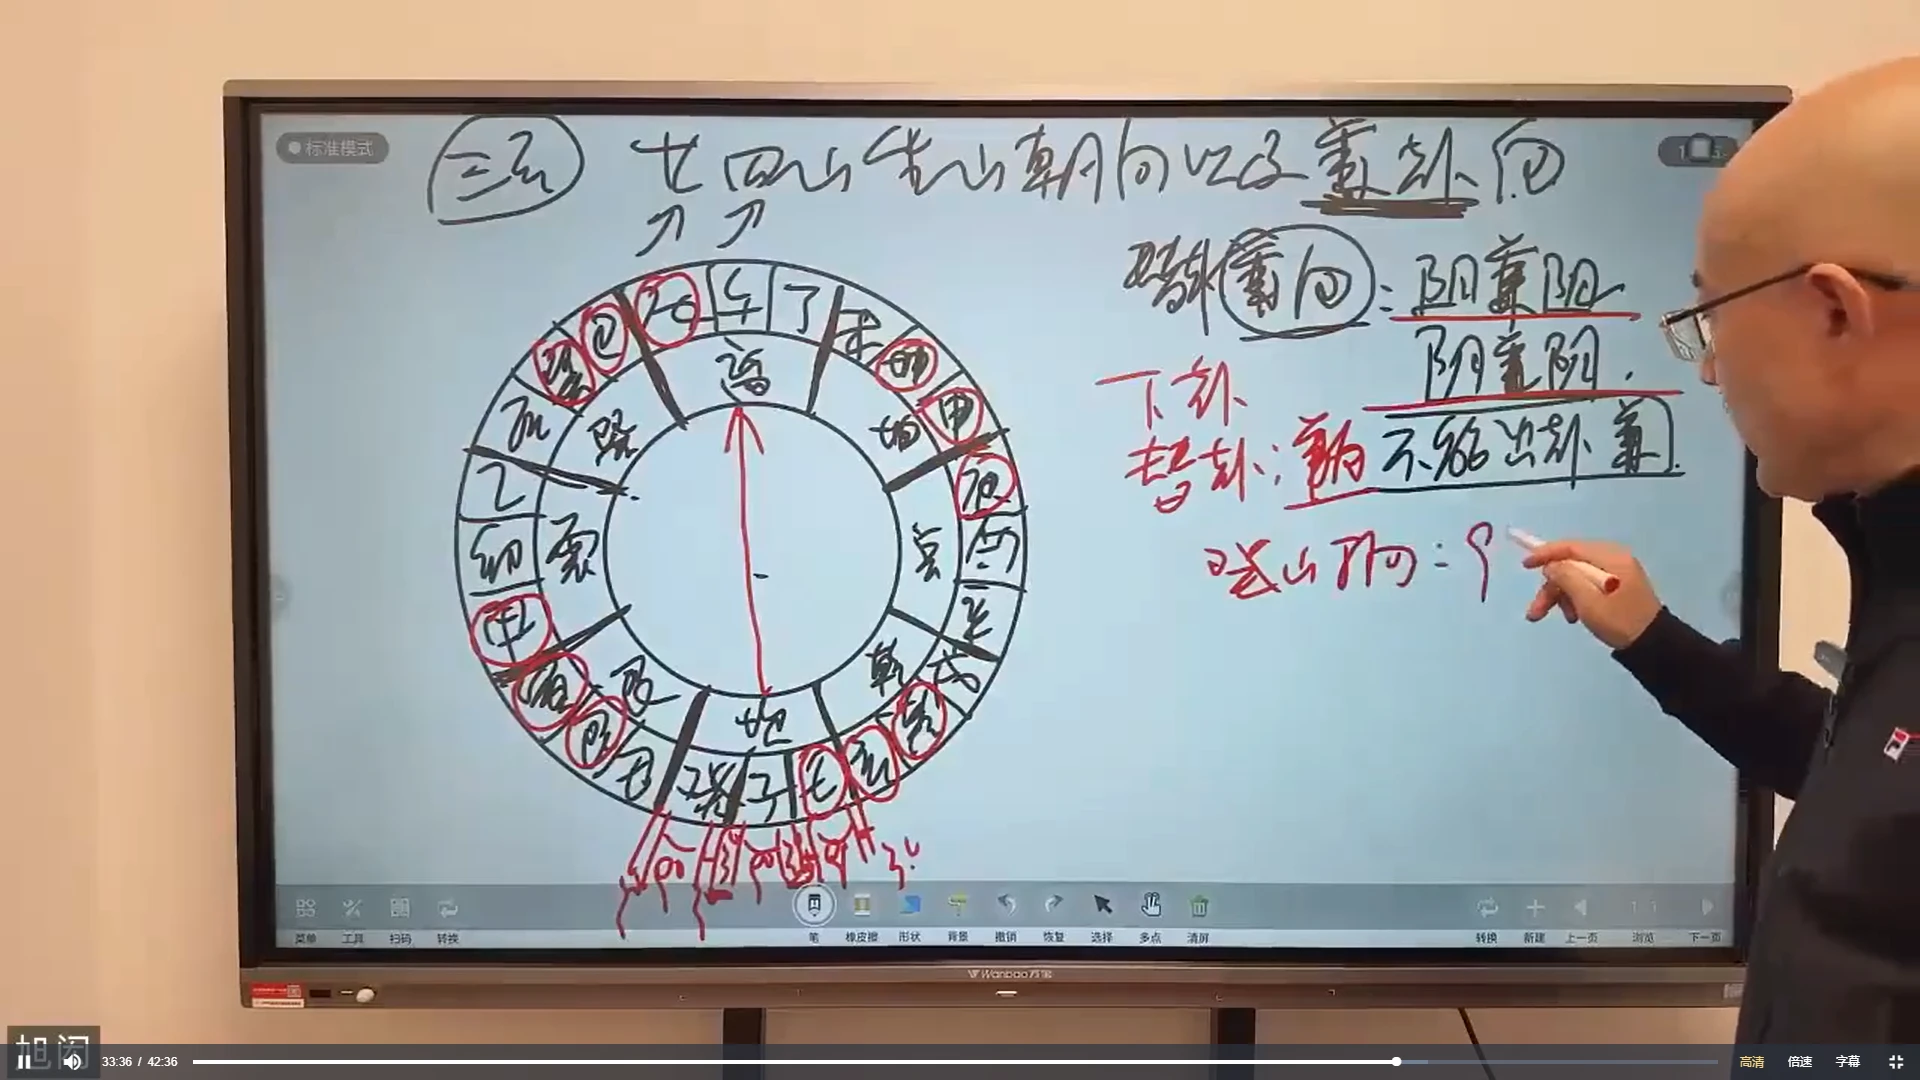 标准模式
三玄 廿四山坐山朝向以及兼卦向
兼向:阴兼阴
阳兼阳.
下卦
替卦:兼向 不能出卦兼
坐山朝向:9
丙 午 丁 未 坤 申 庚 酉 辛 戌 乾 亥 壬 子 癸 丑 艮 寅 甲 卯 乙 辰 巽 巳
离 坤 兑 乾 坎 艮 震 巽
菜单 工具 扫码 转换 笔 橡皮擦 形状 背景 撤销 恢复 选择 多点 清屏 转换 新建 上一页 浏览 下一页
Wanbao万宝
旭闳
33:36 / 42:36 高清 倍速 字幕